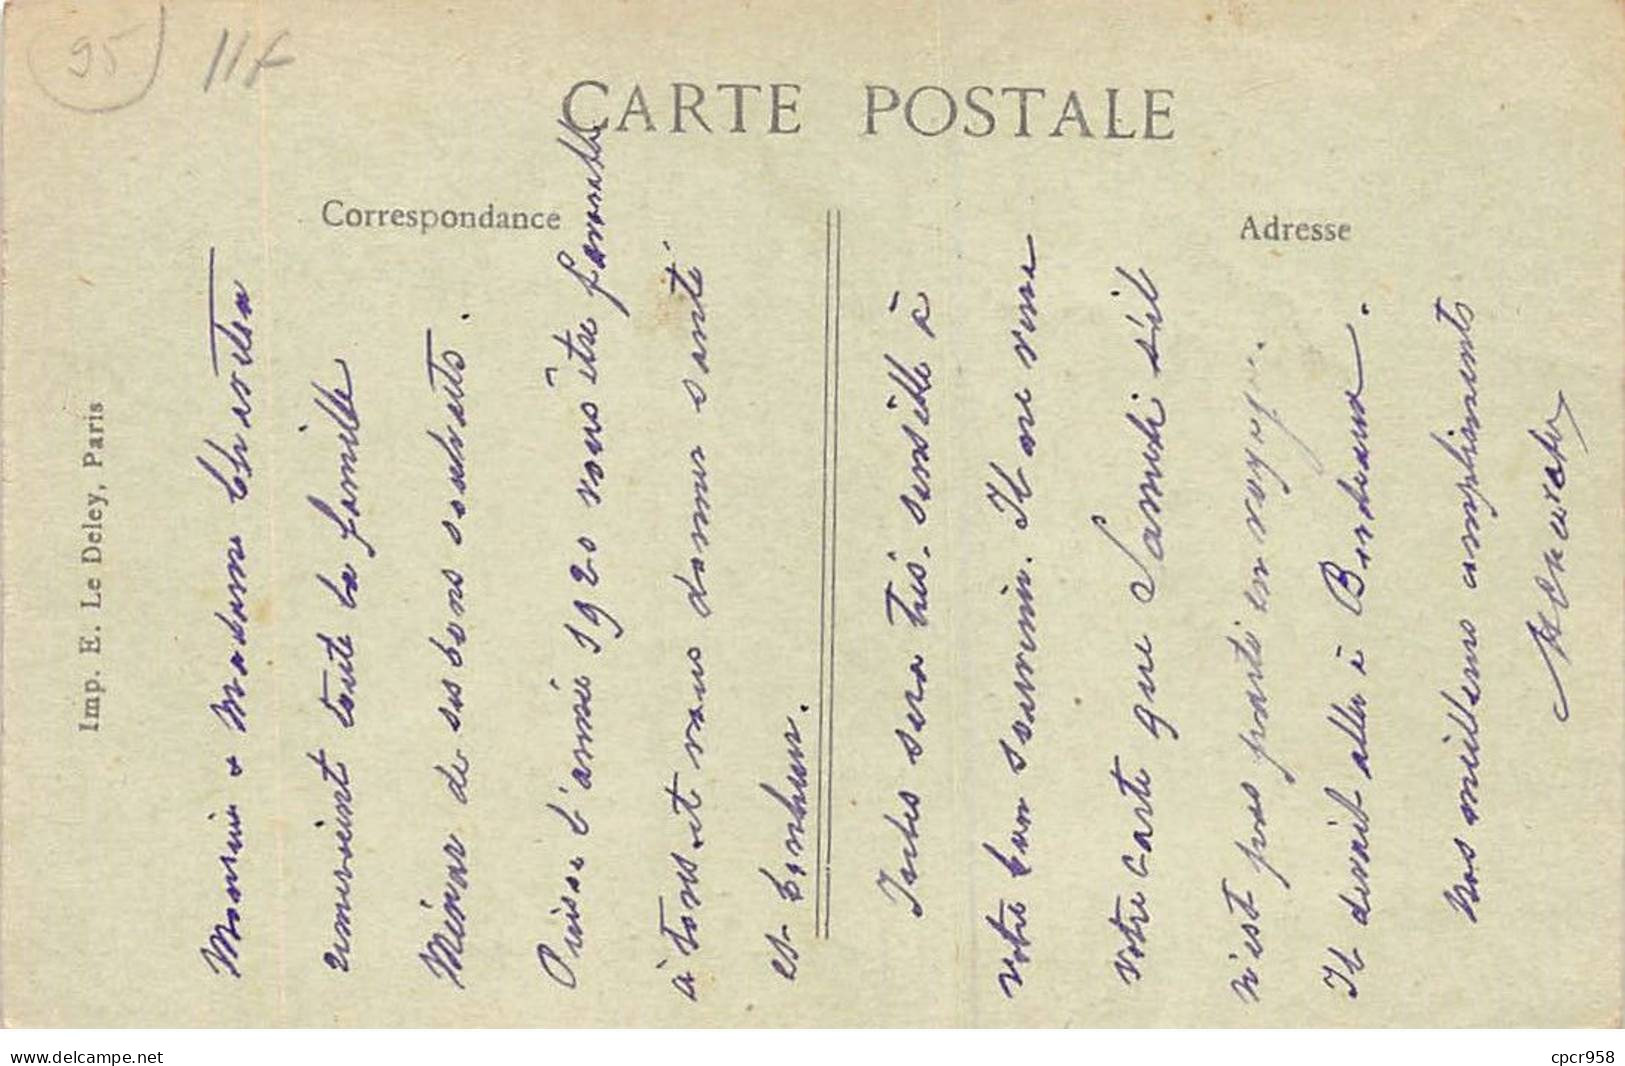 95
11f
CARTE POSTALE
Correspondance
Adresse
Imp. E. Le Deley, Paris
Monsieur & Madame
remercient toute la famille
de ses bons souhaits.
Puisse l'année 1920 vous être favorable
à tous. et vous donner santé
et bonheur.
Jules sera très. sensible à
votre bon souvenir. Il ne verra
votre carte que Samedi s'il
n'est pas parti en voyage.
Il devait aller à Bordeaux.
Nos meilleurs compliments
www.delcampe.net
cpcr958